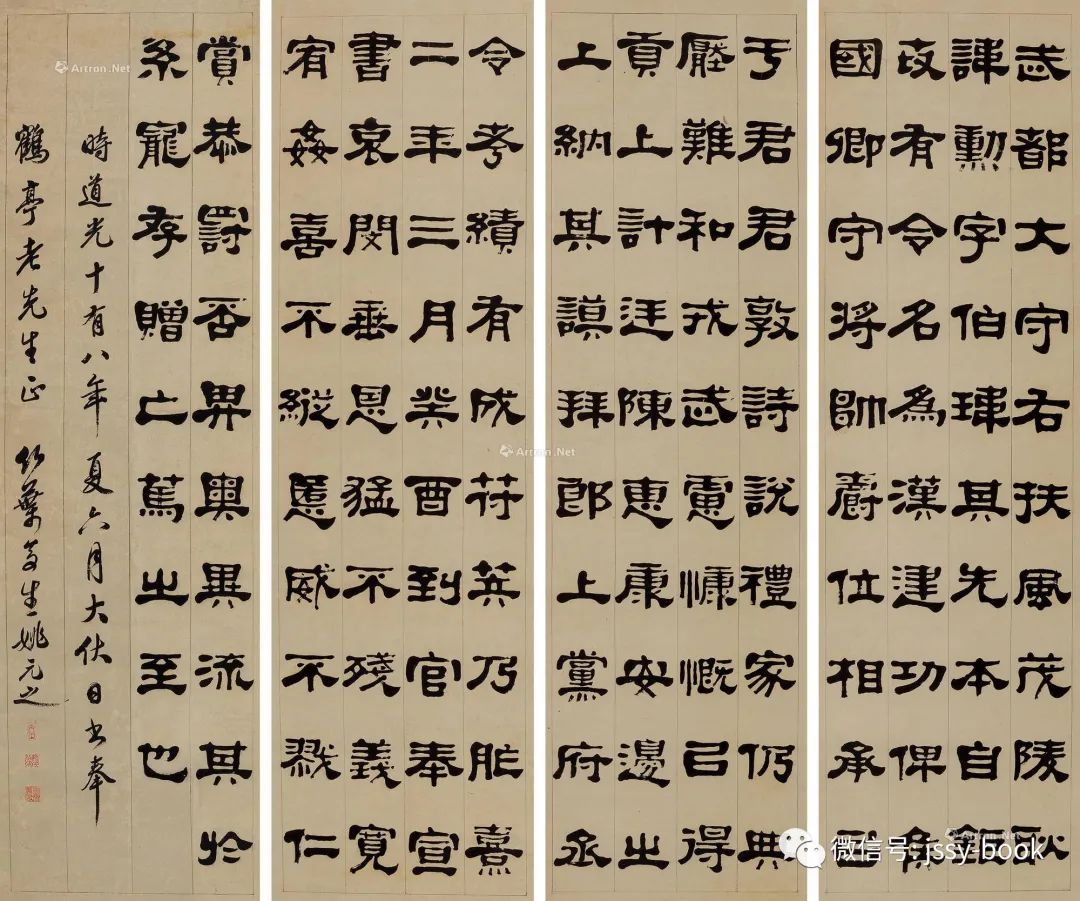 武都大守右扶風茂陵耿
諱勳字伯瑋其先本自鉅
有令名為漢建功俾侯
國卿守將帥爵位相承
于君君敦詩說禮家仍典
壓難和戎武慮慷慨㠯得
貢上計廷陳惠康安邊之
上納其謨拜郎上黨府丞
令考績有成符英乃胙熹
二年三月癸酉到官奉宣
書哀閔垂恩猛不殘義寬
宥姦喜不縱慝威不戮仁
賞恭罰否畀奧異流其於
系寵存贈亡篤之至也
時道光十有八年夏六月大伏日書奉
鶴亭老先生正 竹葉亭生姚元之
Artron.Net
Artron.Net
Artron.Net
微信号: jssy-book